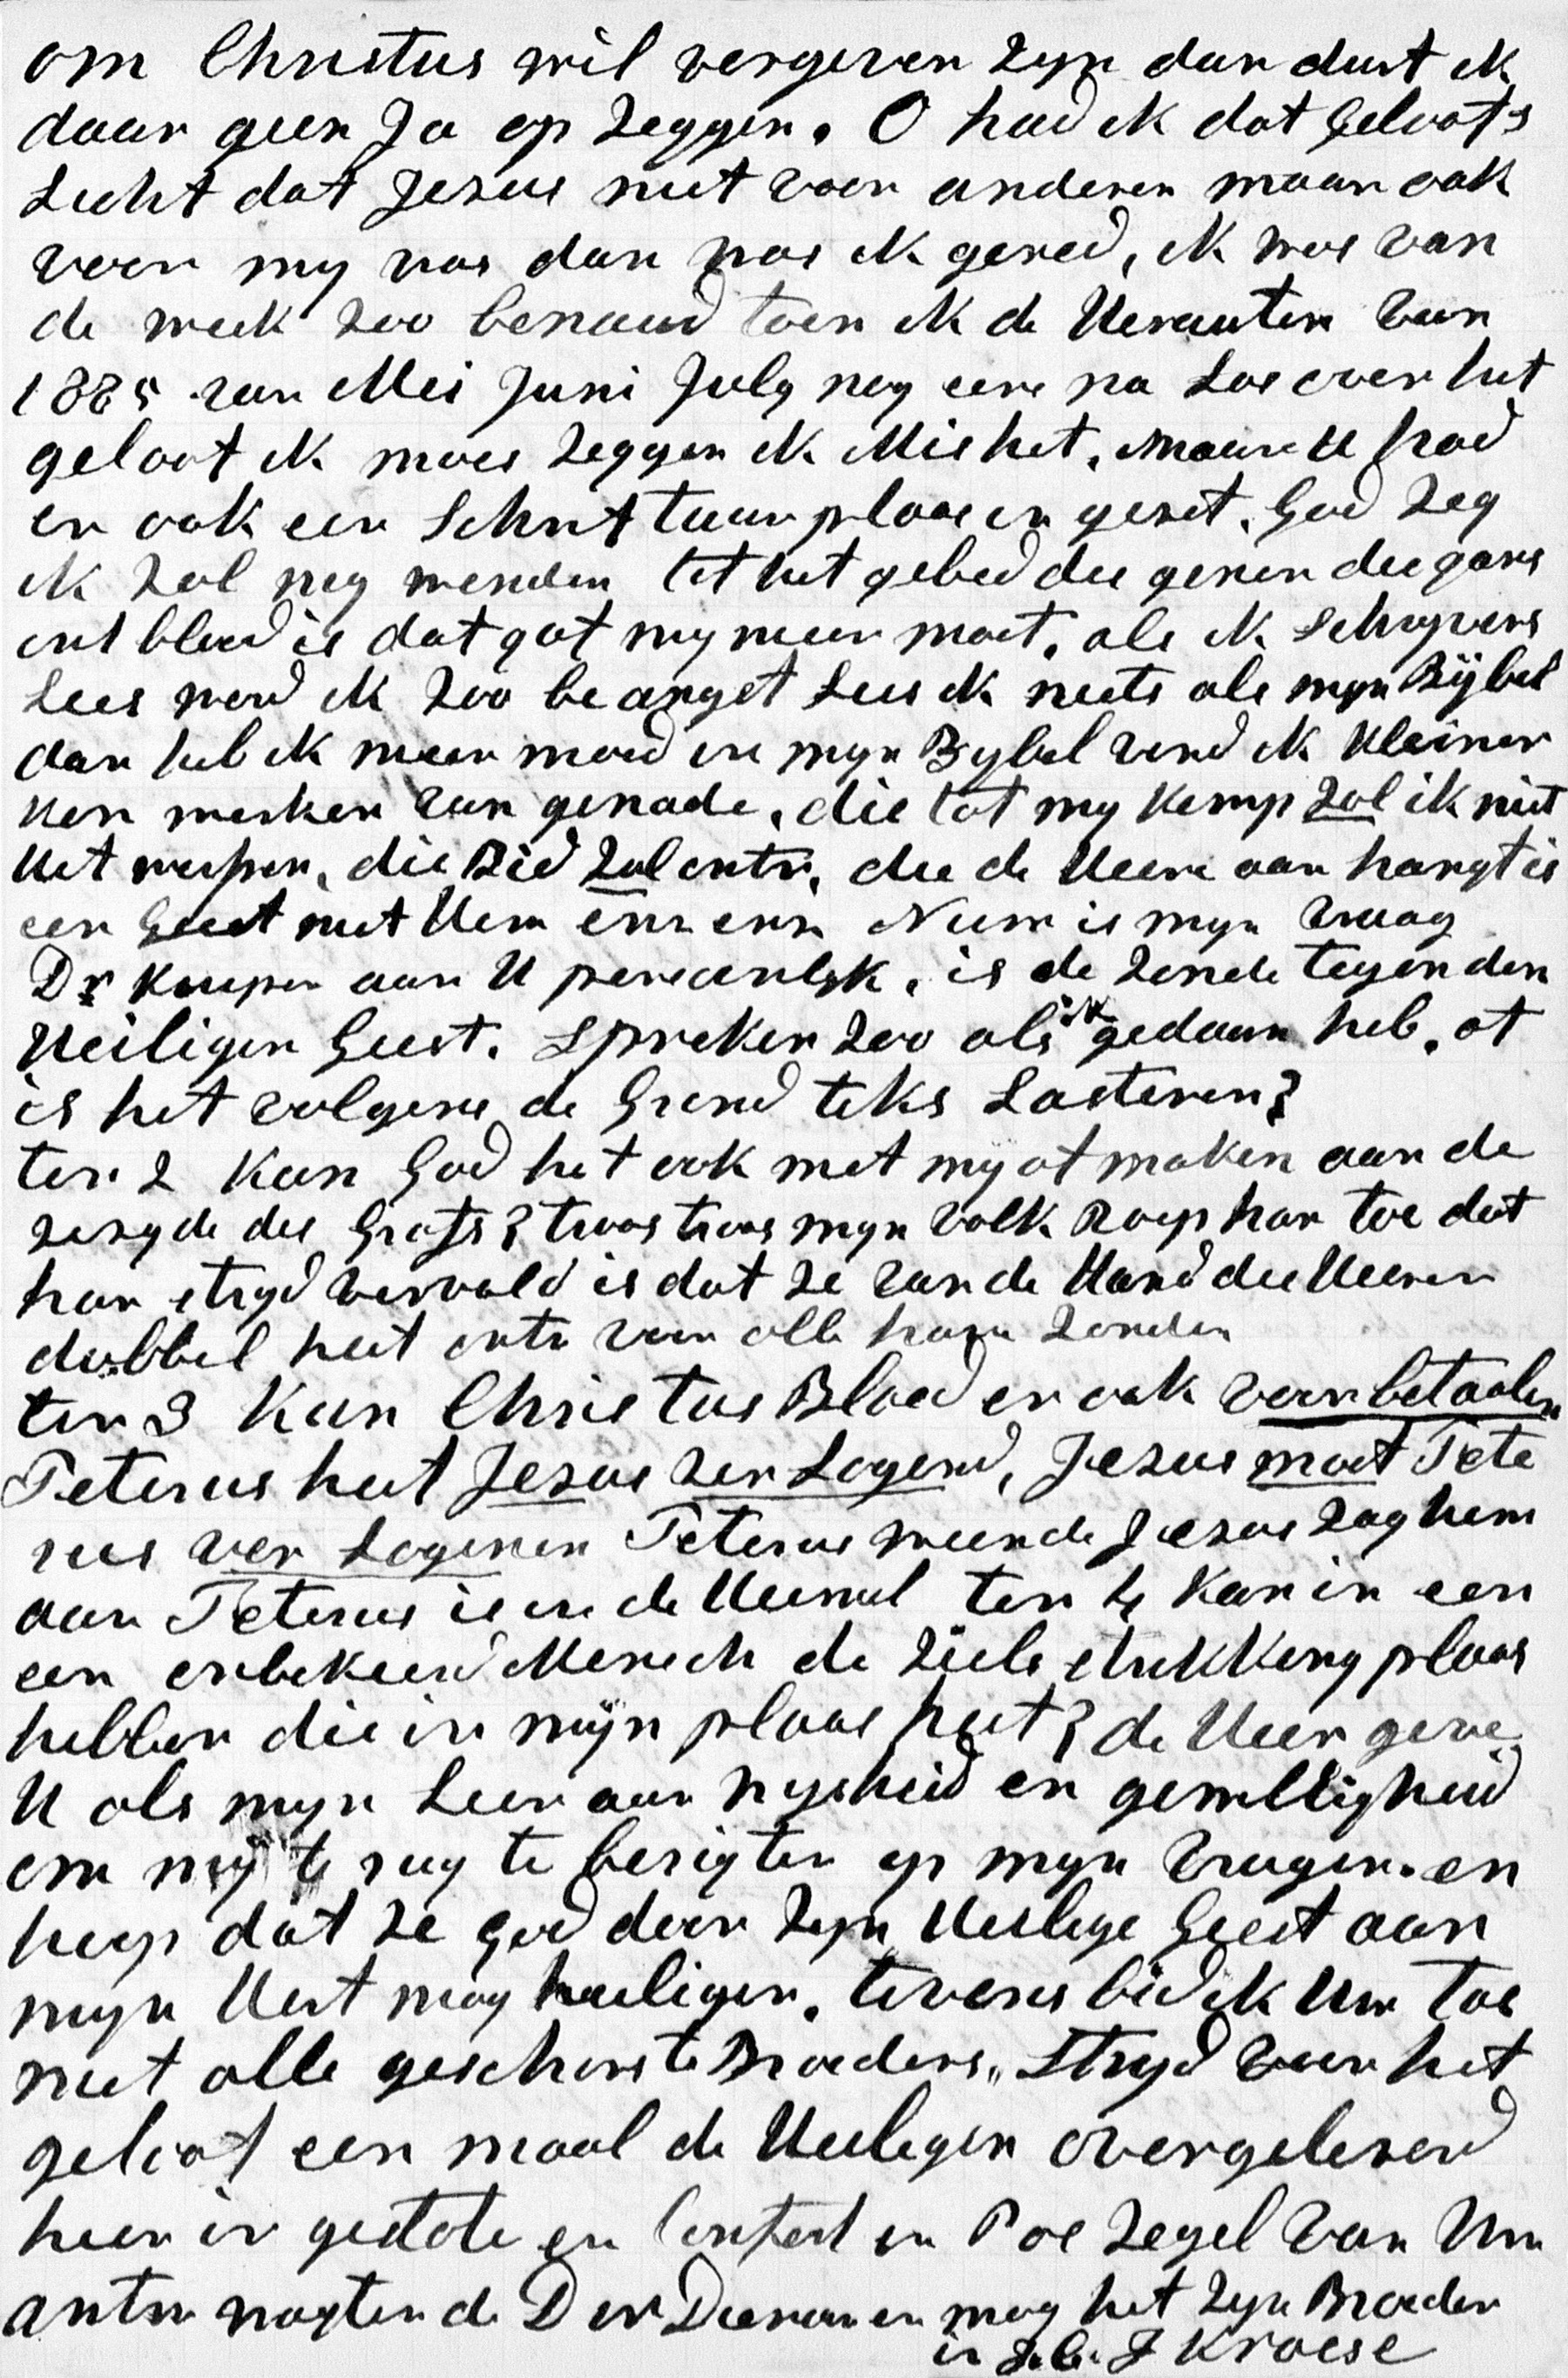 om Christus wil vergeven zyn dan durt ik
daar geen Ja op zeggen. O had ik dat geloofs
Licht dat Jezus niet voor anderen maar ook
voor my was dan was ik gered, ik was van
de week zoo benaud toen ik de Herauten van
1885 van Mei Juni July nog eens na Las over het
geloof ik moes zeggen ik Mis het. maar U had
er ook een Schrift tuur plaas in geset. God zeg
ik zal my wenden tot het gebed des genen die gans
ont bloed is dat gaf my weer moet. als ik Schryvers
Lees word ik zoo be angst Lees ik niets als myn Bÿbel
dan heb ik meer moed in myn Bybel vind ik kleiner
ken merken van genade. die tot my komp zal ik niet
uit werpen, die Bid zal ontv. die de Heere aan hangt is
een Geest met Hem enz enz Nu is myn vraag
Dr Kuiper aan U persoonlyk. is de zonde tegen den
Heiligen Geest. Spreken zoo als ik gedaan heb. of
is het volgens de Grond teks Lasteren?
ten 2 kan God het ook met my af maken aan de
zezyde des Grafs? troos troos myn volk Roep haar toe dat
haar stryd vervuld is dat ze van de Hand des Heeren
dubbel heet ontv voor alle hare zonden
ten 3 kan Christus Bloed er ook voor betaalen
Peterus heet Jezus ver Logend, Jezus moet Pete
rus ver Logenen Peterus weende Jezus zag hem
aan Peterus is in de Hemel ten 4 kan in een
een onbekeerd Mensch de ziels drukking plaas
hebben die in mÿn plaas heet? de Heer geve
U als myn Leer aar wysheid en gewilligheid
om mÿ te rug te berigten op myn vragen. en
hoop dat ze God door zyn Heilige Geest aan
myn Hart mag heiligen. tevens bid ik Um toe
met alle geschorste Broeders „Stryd voor het
geloof een maal de Heiligen overgeleverd
hier in geslote en Confert en Pos zegel van Um
antw wagten de D w Dienaar en mag het zyn Broeder
in J. C. J Kroese